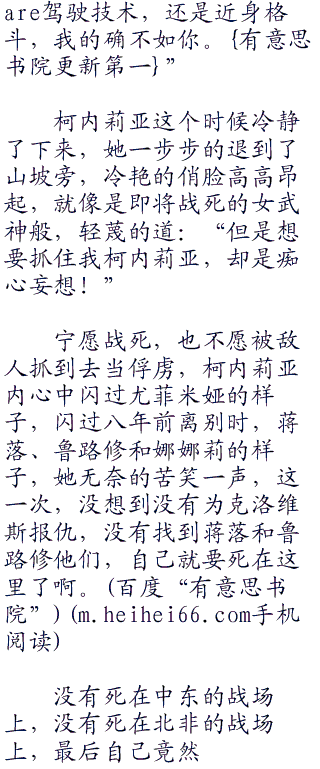 are驾驶技术，还是近身格
斗，我的确不如你。{有意思
书院更新第一}”
柯内莉亚这个时候冷静
了下来，她一步步的退到了
山坡旁，冷艳的俏脸高高昂
起，就像是即将战死的女武
神般，轻蔑的道：“但是想
要抓住我柯内莉亚，却是痴
心妄想！”
宁愿战死，也不愿被敌
人抓到去当俘虏，柯内莉亚
内心中闪过尤菲米娅的样
子，闪过八年前离别时，蒋
落、鲁路修和娜娜莉的样
子，她无奈的苦笑一声，这
一次，没想到没有为克洛维
斯报仇，没有找到蒋落和鲁
路修他们，自己就要死在这
里了啊。(百度“有意思书
院”)(m.heihei66.com手机
阅读)
没有死在中东的战场
上，没有死在北非的战场
上，最后自己竟然